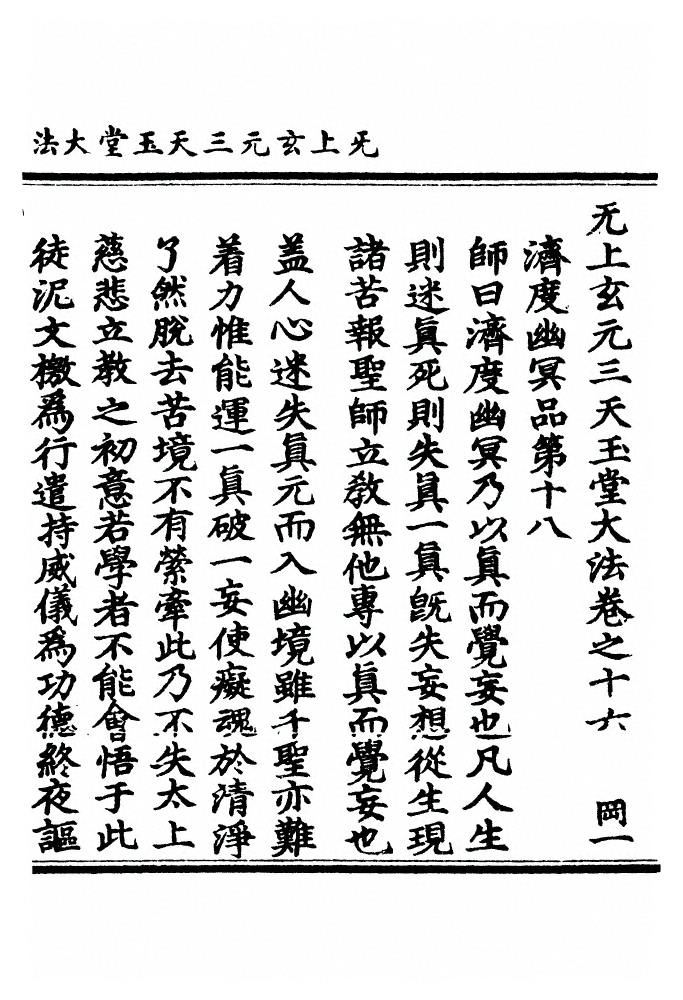 无上玄元三天玉堂大法
无上玄元三天玉堂大法卷之十六 岡一
濟度幽冥品第十八
師曰濟度幽冥乃以眞而覺妄也凡人生
則迷眞死則失眞一眞旣失妄想從生現
諸苦報聖師立教無他專以眞而覺妄也
盖人心迷失眞元而入幽境雖千聖亦難
着力惟能運一眞破一妄使癡魂於清淨
了然脫去苦境不有縈牽此乃不失太上
慈悲立教之初意若學者不能會悟于此
徒泥文檄爲行遣持威儀爲功德終夜謳